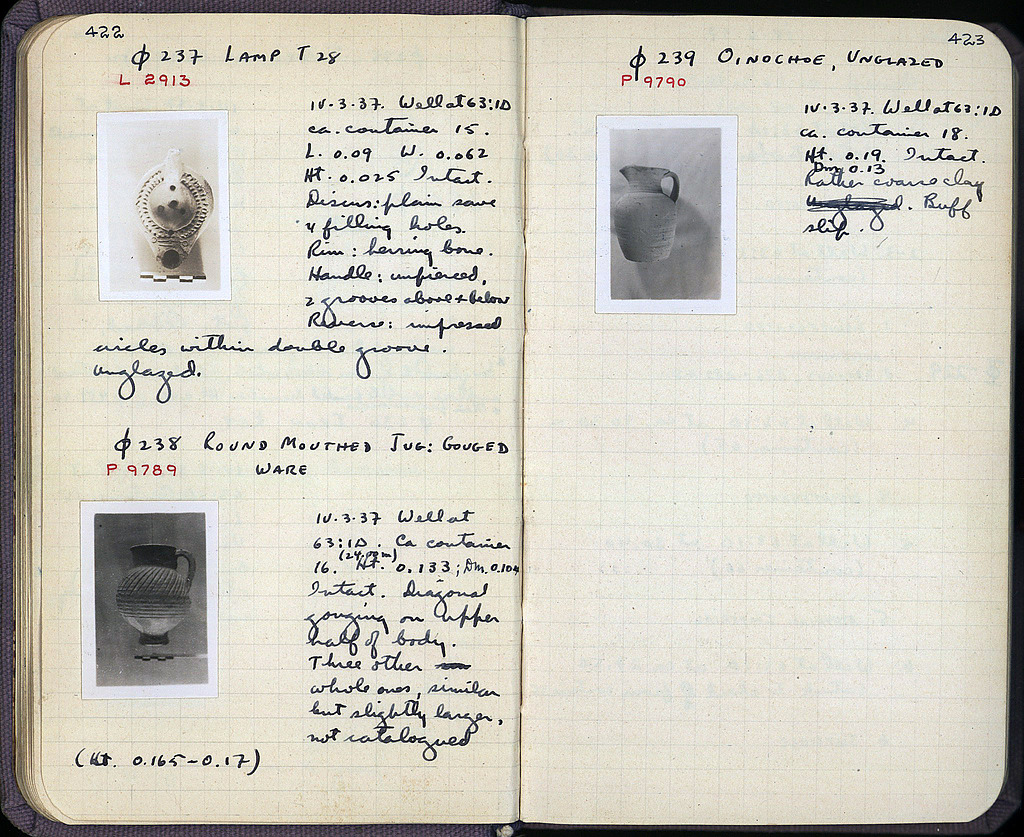 422
ϕ 237 LAMP T 28
L 2913
IV.3.37. Well at 63:1D
ca. container 15.
L. 0.09 W. 0.062
Ht. 0.025 Intact.
Discus: plain save
4 filling holes.
Rim: herring bone.
Handle: unpierced,
2 grooves above + below
Reverse: impressed
circles within double groove.
Unglazed.
ϕ 238 ROUND MOUTHED JUG: GOUGED
P 9789 WARE
IV.3.37 Well at
63:1D. Ca container
16. Ht. 0.133; Dm. 0.104
Intact. Diagonal
gouging on upper
half of body.
Three other
whole ones, similar
but slightly larger,
not catalogued
(Ht. 0.165-0.17)
423
ϕ 239 OINOCHOE, UNGLAZED
P 9790
IV.3.37. Well at 63:1D
ca. container 18.
Ht. 0.19. Intact.
Dm. 0.13
Rather coarse clay
Unglazed. Buff
slip.